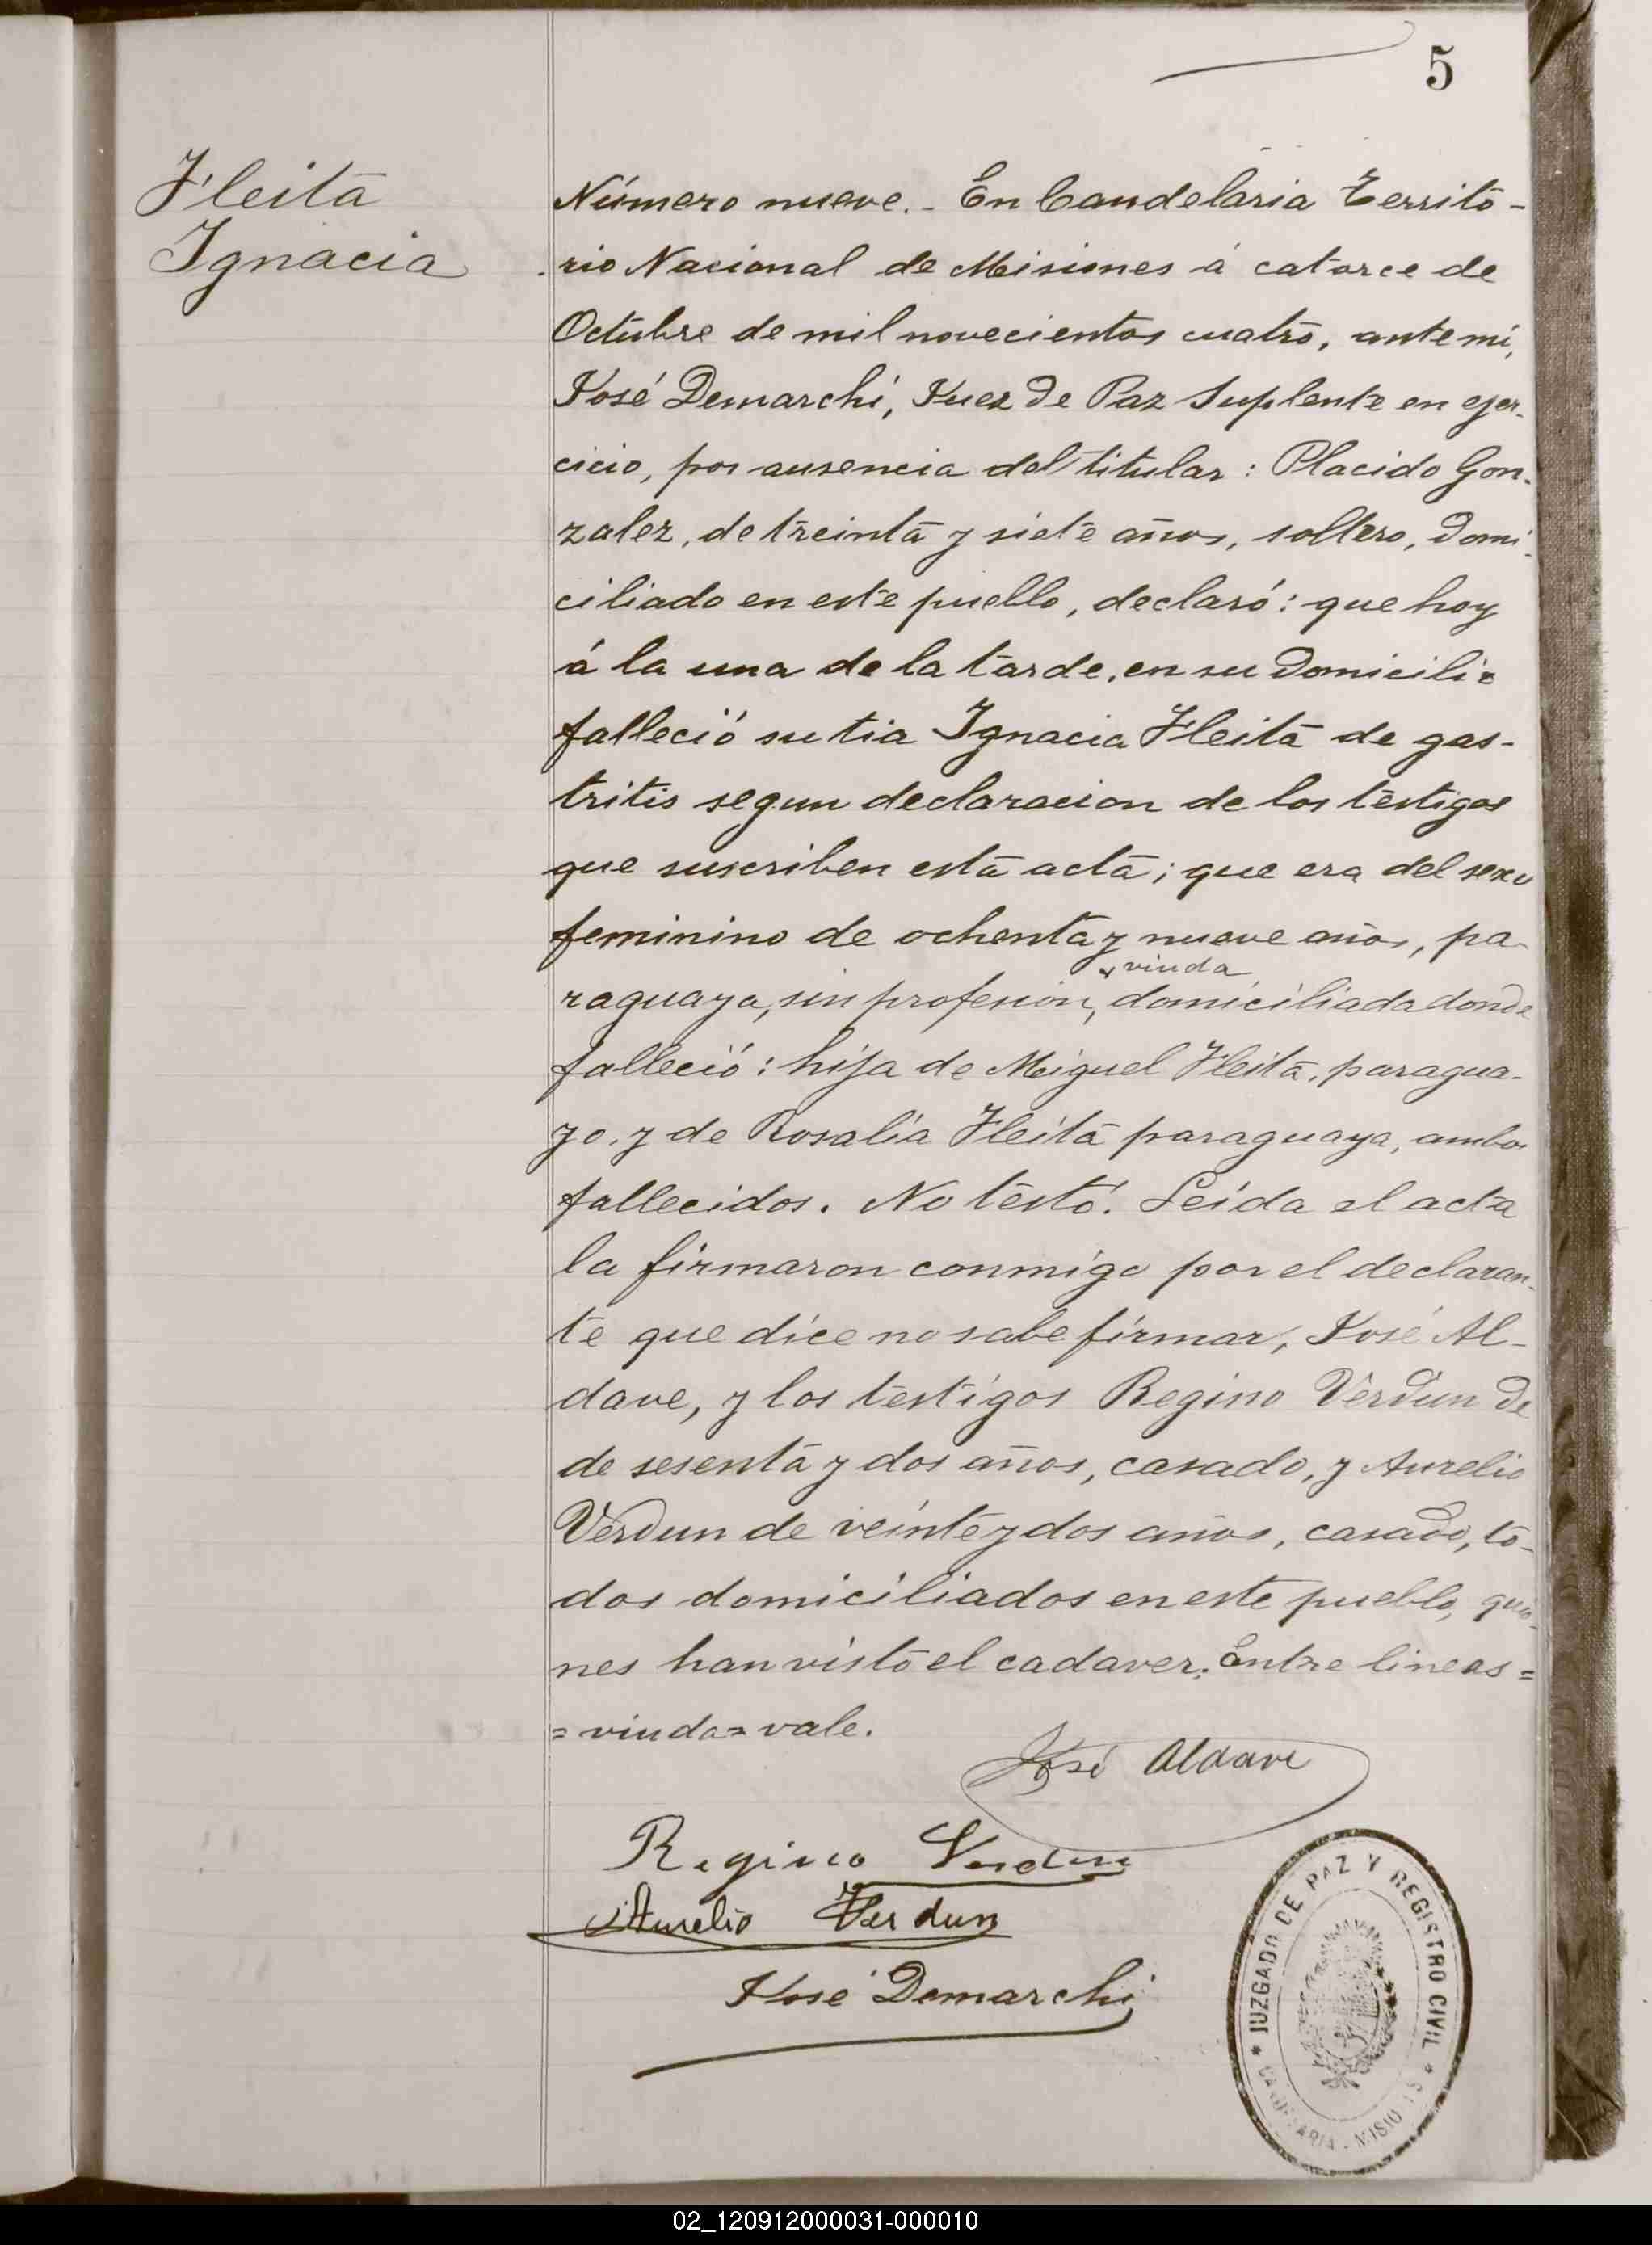 5
Fleita
Ignacia
Número nueve.- En Candelaria Territo-
rio Nacional de Misiones á catorce de
Octubre de mil novecientos cuatro, ante mi,
José Demarchi, Juez de Paz Suplente en ejer-
cicio, por ausencia del titular: Placido Gon-
zalez, de treinta y siete años, soltero, domi-
ciliado en este pueblo, declaró: que hoy
á la una de la tarde, en su domicilio
falleció su tia Ignacia Fleita de gas-
tritis segun declaracion de los testigos
que suscriben esta acta; que era del sexo
feminino de ochenta y nueve años, pa-
viuda
raguaya, sin profesion, domiciliada donde
falleció: hija de Miguel Fleita, paragua-
yo, y de Rosalía Fleita paraguaya, ambos
fallecidos. No testó. Leída el acta
la firmaron conmigo por el declaran-
te que dice no sabe firmar, José Al-
dave, y los testigos Regino Verdun de
de sesenta y dos años, casado, y Aurelio
Verdun de veinte y dos años, casado, to-
dos domiciliados en este pueblo, quie-
nes han visto el cadaver. Entre lineas =
= viuda = vale.
José Aldave
Regino Verdun
Aurelio Verdun
José Demarchi
* JUZGADO DE PAZ Y REGISTRO CIVIL *
CANDELARIA - MISIONES
02_120912000031-000010